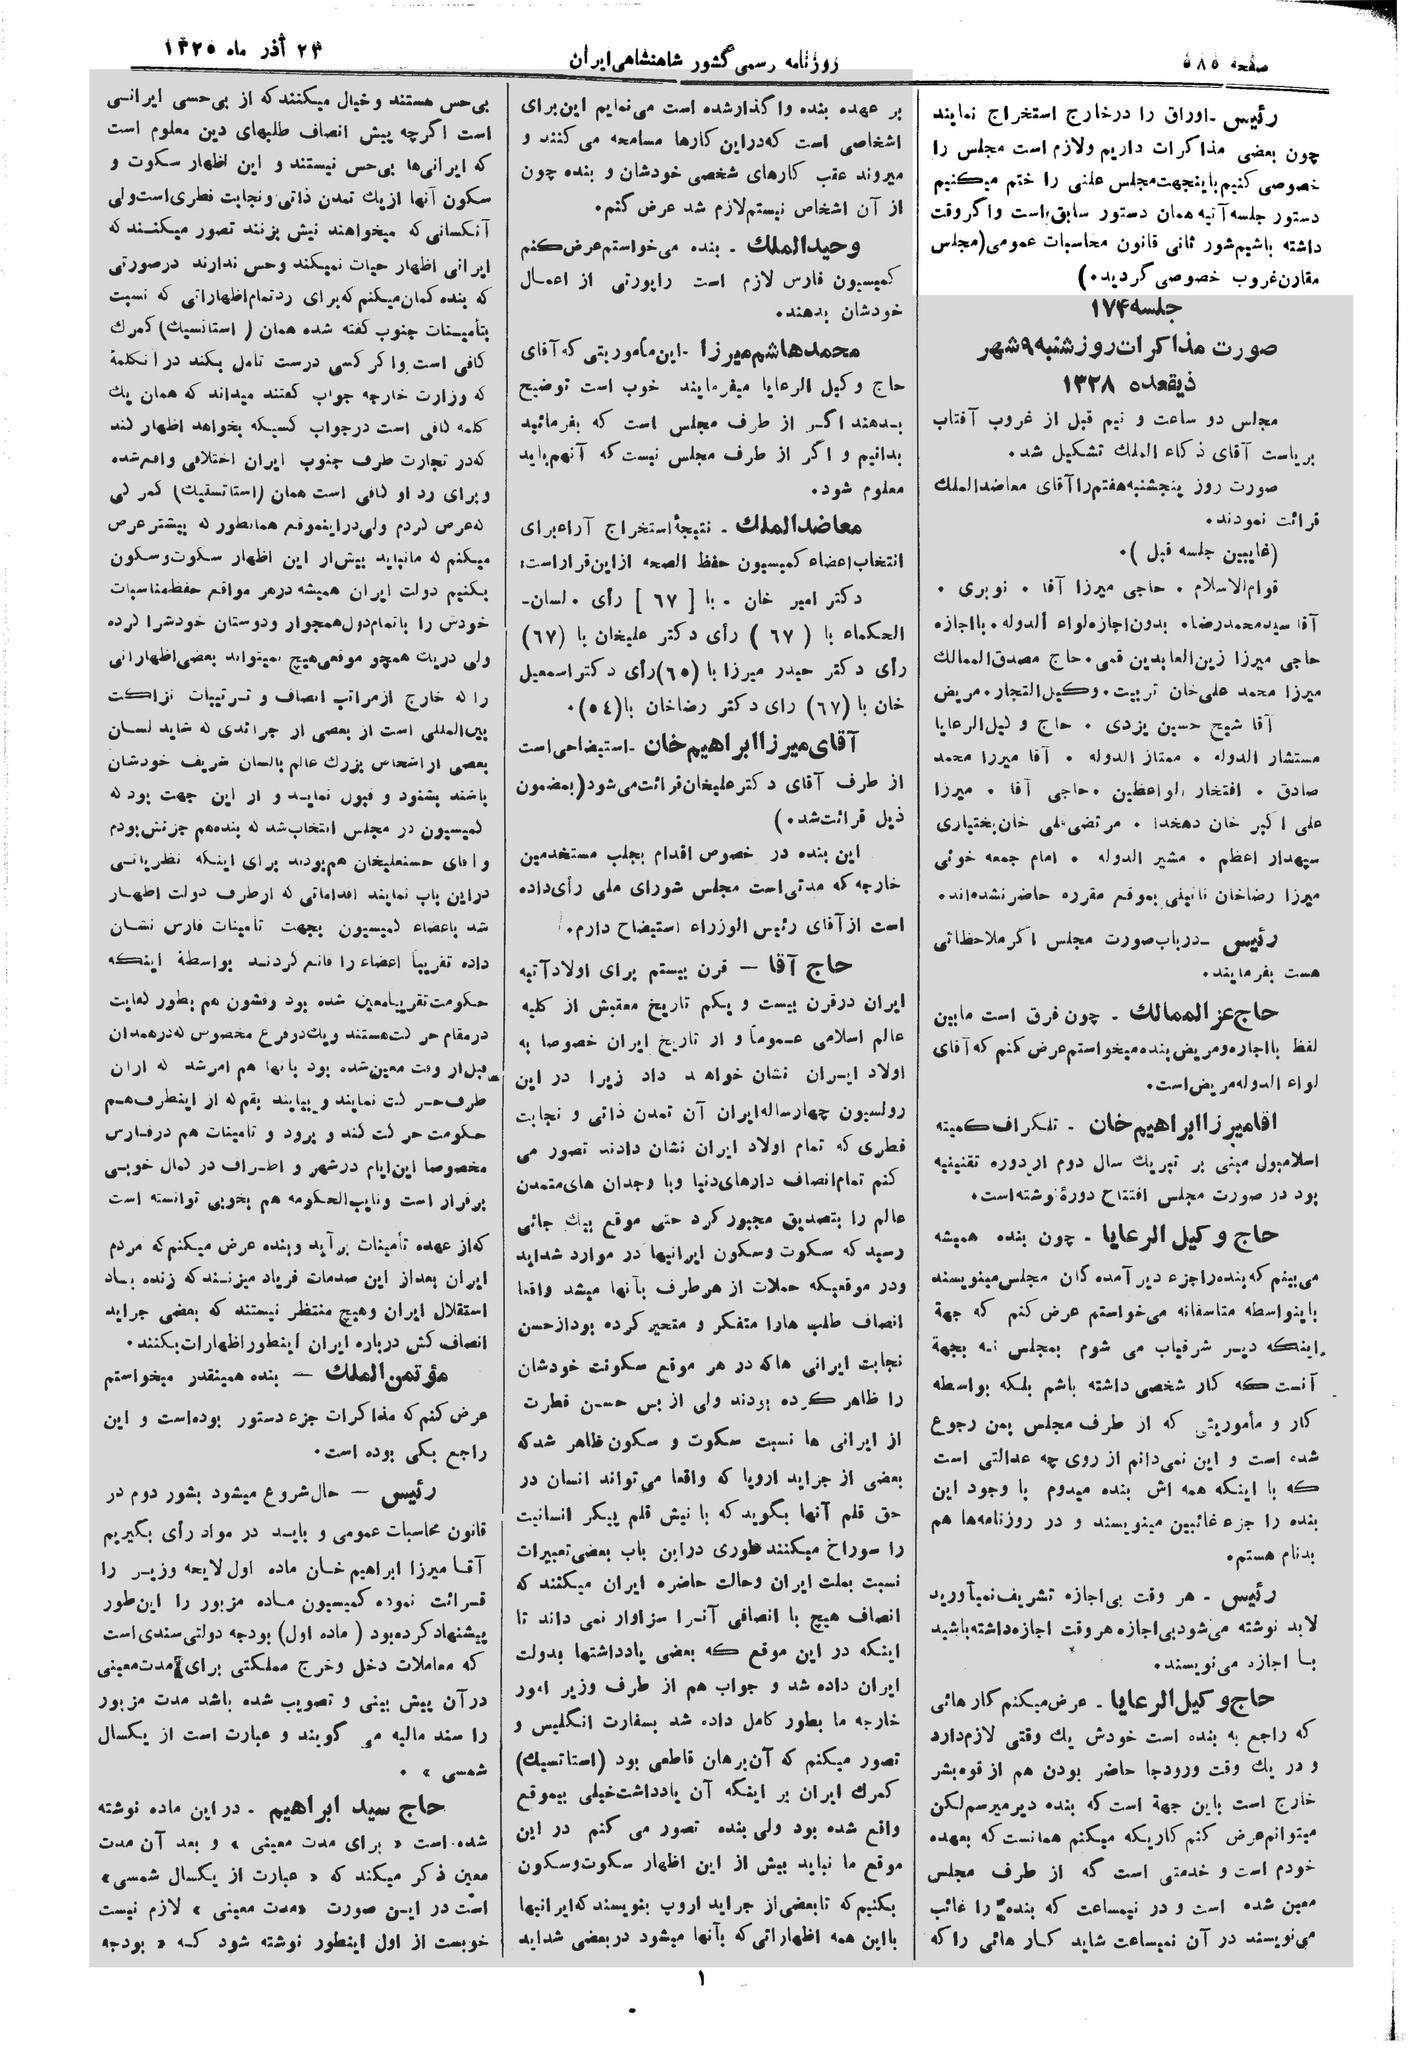 صفحه ۵۸۵
روزنامه رسمی کشور شاهنشاهی ایران
۲۳ آذر ماه ۱۳۲۵
رئیس ـ اوراق را در خارج استخراج نمایند
چون بعضی مذاکرات داریم و لازم است مجلس را
خصوصی کنیم باینجهت مجلس علنی را ختم میکنیم
دستور جلسه آتیه همان دستور سابق است و اگر وقت
داشته باشیم شور ثانی قانون محاسبات عمومی (مجلس
مقارن غروب خصوصی گردید.)
جلسه ۱۷۴
صورت مذاکرات روز شنبه ۹ شهر
ذیقعده ۱۳۲۸
مجلس دو ساعت و نیم قبل از غروب آفتاب
بریاست آقای ذکاء الملك تشکیل شد.
صورت روز پنجشنبه هفتم را آقای معاضد الملك
قرائت نمودند.
(غایبین جلسه قبل).
قوام الاسلام . حاجی میرزا آقا . نوبری .
آقا سید محمد رضا . بدون اجازه لواء الدوله . با اجازه
حاجی میرزا زین العابدین قمی . حاج مصدق الممالك
میرزا محمد علی خان تربیت . وکیل التجار . مریض
آقا شیخ حسین یزدی . حاج وکیل الرعایا
مستشار الدوله . ممتاز الدوله . آقا میرزا محمد
صادق . افتخار الواعظین . حاجی آقا . میرزا
علی اکبر خان دهخدا . مرتضی قلی خان بختیاری
سپهدار اعظم . مشیر الدوله . امام جمعه خوئی
میرزا رضاخان نائینی بموقع مقرره حاضر نشده اند.
رئیس ـ در باب صورت مجلس اگر ملاحظاتی
هست بفرمایند.
حاج عز الممالك ـ چون فرق است مابین
لفظ با اجازه و مریض بنده میخواستم عرض کنم که آقای
لواء الدوله مریض است.
اقا میرزا ابراهیم خان ـ تلگراف کمیته
اسلامبول مبنی بر تبریك سال دوم از دوره تقنینیه
بود در صورت مجلس افتتاح دوره نوشته است.
حاج وکیل الرعایا ـ چون بنده همیشه
می بینم که بنده را جزء دیر آمده گان مجلس مینویسند
باینواسطه متاسفانه می خواستم عرض کنم که جهة
اینکه دیر شرفیاب می شوم بمجلس نه بجهة
آنست که کار شخصی داشته باشم بلکه بواسطه
کار و مأموریتی که از طرف مجلس بمن رجوع
شده است و این نمی دانم از روی چه عدالتی است
که با اینکه همه اش بنده میدوم با وجود این
بنده را جزء غائبین مینویسند و در روزنامه ها هم
بدنام هستم.
رئیس ـ هر وقت بی اجازه تشریف نمیآورید
لابد نوشته می شود بی اجازه هر وقت اجازه داشته باشید
با اجازه می نویسند.
حاج وکیل الرعایا ـ عرض میکنم کار هائی
که راجع به بنده است خودش یك وقتی لازم دارد
و در یك وقت و دو جا حاضر بودن هم از قوه بشر
خارج است باین جهة است که بنده دیر میرسم لکن
میتوانم عرض کنم کاریکه میکنم همانست که بعهده
خودم است و خدمتی است که از طرف مجلس
معین شده است و در نیمساعت که بنده را غائب
می نویسند در آن نیمساعت شاید کار هائی را که
بر عهده بنده واگذار شده است می نمایم این برای
اشخاصی است که در این کارها مسامحه می کنند و
میروند عقب کارهای شخصی خودشان و بنده چون
از آن اشخاص نیستم لازم شد عرض کنم.
وحید الملك ـ بنده می خواستم عرض کنم
کمیسیون فارس لازم است راپورتی از اعمال
خودشان بدهند.
محمد هاشم میرزا ـ این مأموریتی که آقای
حاج وکیل الرعایا میفرمایند خوب است توضیح
بدهند اگر از طرف مجلس است که بفرمائید
بدانیم و اگر از طرف مجلس نیست که آنهم باید
معلوم شود.
معاضد الملك ـ نتیجهٔ استخراج آراء برای
انتخاب اعضاء کمیسیون حفظ الصحه از این قرار است:
دکتر امیر خان . با [ ۶۷ ] رأی . لسان ـ
الحکماء با ( ۶۷ ) رأی دکتر علیخان با (۶۷)
رأی دکتر حیدر میرزا با (۶۵) رأی دکتر اسمعیل
خان با (۶۷) رای دکتر رضاخان با (۵۴).
آقای میرزا ابراهیم خان ـ استیضاحی است
از طرف آقای دکتر علیخان قرائت می شود (بمضمون
ذیل قرائت شد.)
این بنده در خصوص اقدام بجلب مستخدمین
خارجه که مدتی است مجلس شورای ملی رأی داده
است از آقای رئیس الوزراء استیضاح دارم.
حاج آقا ـ قرن بیستم برای اولاد آتیه
ایران در قرن بیست و یکم تاریخ معقبش از کلیه
عالم اسلامی عموماً و از تاریخ ایران خصوصا به
اولاد ایران نشان خواهد داد زیرا در این
رولسیون چهار ساله ایران آن تمدن ذاتی و نجابت
فطری که تمام اولاد ایران نشان دادند تصور می
کنم تمام انصاف دارهای دنیا و با وجدان های متمدن
عالم را بتصدیق مجبور کرد حتی موقع بیك جائی
رسید که سکوت و سکون ایرانیها در موارد شداید
و در موقعیکه حملات از هر طرف بآنها میشد واقعا
انصاف طلب هارا متفکر و متحیر کرده بود از حسن
نجابت ایرانی ها که در هر موقع سکونت خودشان
را ظاهر کرده بودند ولی از بس حسن فطرت
از ایرانی ها نسبت سکوت و سکون ظاهر شد که
بعضی از جراید اروپا که واقعا می تواند انسان در
حق قلم آنها بگوید که با نیش قلم پیکر انسانیت
را سوراخ میکنند طوری در این باب بعضی تعبیرات
نسبت بملت ایران و حالت حاضره ایران میکنند که
انصاف هیچ با انصافی آنرا سزاوار نمی داند تا
اینکه در این موقع که بعضی یادداشتها بدولت
ایران داده شد و جواب هم از طرف وزیر امور
خارجه ما بطور کامل داده شد بسفارت انگلیس و
تصور میکنم که آن برهان قاطعی بود (استاتسیك)
کمرك ایران بر اینکه آن یادداشت خیلی بیموقع
واقع شده بود ولی بنده تصور می کنم در این
موقع ما نباید بیش از این اظهار سکوت و سکون
بکنیم که تا بعضی از جراید اروپ بنویسند که ایرانیها
با این همه اظهاراتی که بآنها میشود در بعضی شداید
بی حس هستند و خیال میکنند که از بی حسی ایرانی
است اگرچه پیش انصاف طلبهای دین معلوم است
که ایرانی ها بی حس نیستند و این اظهار سکوت و
سکون آنها از یك تمدن ذاتی و نجابت فطری است ولی
آنکسانی که میخواهند نیش بزنند تصور میکنند که
ایرانی اظهار حیات نمیکند و حس ندارند در صورتی
که بنده گمان میکنم که برای رد تمام اظهاراتی که نسبت
بتأمینات جنوب گفته شده همان (استاتسیك) کمرك
کافی است و اگر کسی درست تامل بکند در آنکلمه
که وزارت خارجه جواب گفتند میداند که همان یك
کلمه کافی است در جواب کسیکه بخواهد اظهار کند
که در تجارت طرف جنوب ایران اختلافی واقع شده
و برای رد او کافی است همان (استاتستیك) کمرکی
که عرض کردم ولی در اینموقع همانطور که بیشتر عرض
میکنم که مانباید بیش از این اظهار سکوت و سکون
بکنیم دولت ایران همیشه در هر مواقع حفظ مناسبات
خودش را با تمام دول همجوار و دوستان خودشرا کرده
ولی در یك همچو موقعی هیچ نمیتواند بعضی اظهاراتی
را که خارج از مراتب انصاف و ترتیبات نزاکت
بین المللی است از بعضی از جرائدی که شاید لسان
بعضی از اشخاص بزرك عالم یا لسان شریف خودشان
باشند بشنود و قبول نماید و از این جهت بود که
کمیسیون در مجلس انتخاب شد که بنده هم جزئش بودم
و اقای حسنعلیخان هم بودند برای اینکه نظریاتی
در این باب نمایند اقداماتی که از طرف دولت اظهار
شد باعضاء کمیسیون بجهت تأمینات فارس نشان
داده تقریباً اعضاء را قانع کردند بواسطهٔ اینکه
حکومت تقریبا معین شده بود و قشون هم بطور کفایت
در مقام حرکت هستند و یك دو فرع مخصوص که در همدان
قبل از وقت معین شده بود بآنها هم امر شد که از ان
طرف حرکت نمایند و بیایند بقم که از اینطرف هم
حکومت حرکت کند و برود و تامینات هم در فارس
مخصوصا این ایام در شهر و اطراف در کمال خوبی
برقرار است و نایب الحکومه هم بخوبی توانسته است
که از عهده تأمینات برآید و بنده عرض میکنم که مردم
ایران بعد از این صدمات فریاد میزنند که زنده باد
استقلال ایران و هیچ منتظر نیستند که بعضی جراید
انصاف کش درباره ایران اینطور اظهارات بکنند.
مؤتمن الملك ـ بنده همینقدر میخواستم
عرض کنم که مذاکرات جزء دستور بوده است و این
راجع بکی بوده است.
رئیس ـ حال شروع میشود بشور دوم در
قانون محاسبات عمومی و باید در مواد رأی بگیریم
آقا میرزا ابراهیم خان ماده اول لایحه وزیر را
قرائت نموده کمیسیون ماده مزبور را این طور
پیشنهاد کرده بود ( ماده اول) بودجه دولتی سندی است
که معاملات دخل و خرج مملکتی برای مدت معینی
در آن پیش بینی و تصویب شده باشد مدت مزبور
را سند مالیه می گویند و عبارت است از یکسال
شمسی » .
حاج سید ابراهیم ـ در این ماده نوشته
شده است « برای مدت معینی » و بعد آن مدت
معین ذکر میکند که « عبارت از یکسال شمسی»
است در این صورت «مدت معینی » لازم نیست
خوبست از اول اینطور نوشته شود که « بودجه
۱